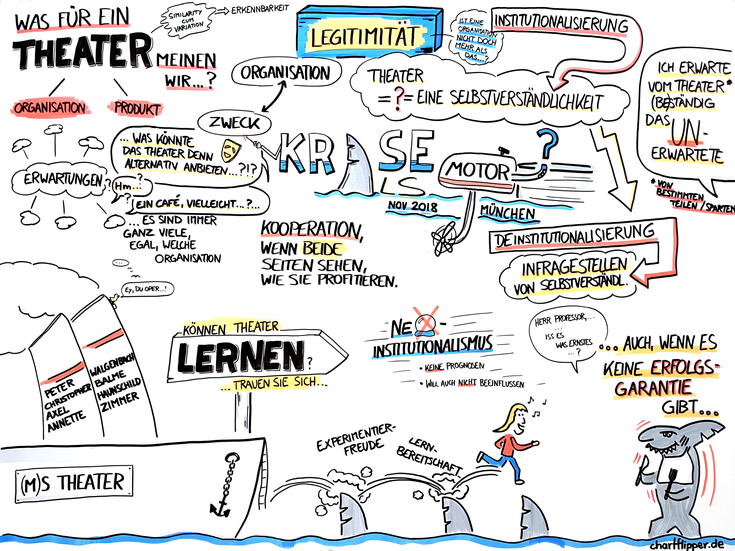 WAS FÜR EIN
THEATER MEINEN
WIR...?
SIMILARITY
CUM
VARIATION
→ ERKENNBARKEIT
ORGANISATION
PRODUKT
ERWARTUNGEN
LEGITIMITÄT
IST EINE
ORGANISATION
NICHT DOCH
MEHR ALS
DAS...?
INSTITUTIONALISIERUNG
ORGANISATION
ZWECK
THEATER
=?= EINE SELBSTVERSTÄNDLICHKEIT
ICH ERWARTE
VOM THEATER*
(BE)STÄNDIG
DAS UN-
ERWARTETE
* VON
BESTIMMTEN
TEILEN/SPARTEN
... WAS KÖNNTE
DAS THEATER DENN
ALTERNATIV ANBIETEN...?!?
Hm...?
EIN CAFÉ, VIELLEICHT...?...
... ES SIND IMMER
GANZ VIELE,
EGAL, WELCHE
ORGANISATION
Ey, DU OPER...!
KRISE
ALS
MOTOR
?
NOV 2018
MÜNCHEN
KOOPERATION,
WENN BEIDE
SEITEN SEHEN,
WIE SIE PROFITIEREN.
DEINSTITUTIONALISIERUNG
INFRAGESTELLEN
VON SELBSTVERSTÄNDL.
PETER
CHRISTOPHER
AXEL
ANNETTE
WALGENBACH
BALME
HAUNSCHILD
ZIMMER
KÖNNEN THEATER
LERNEN?
...TRAUEN SIE SICH...
NEO-
INSTITUTIONALISMUS
• KEINE PROGNOSEN
• WILL AUCH NICHT BEEINFLUSSEN
HERR PROFESSOR,...
...
ISS ES
WAS ERNSTES
...?
... AUCH, WENN ES
KEINE ERFOLGS-
GARANTIE
GIBT...
EXPERIMENTIER-
FREUDE
LERN-
BEREITSCHAFT
(M)S THEATER
chartflipper.de